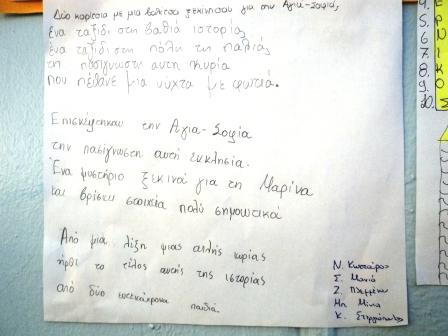 Δύο κορίτσια με μια βαλίτσα ξεκίνησαν για την Αγιά-Σοφιά,
ένα ταξίδι στη βαθιά ιστορία,
ένα ταξίδι στη πόλη τη παλιά
τη πασίγνωστη αυτή κυρία
που πέθανε μια νύχτα με φωτιά.
Επισκέφτηκαν την Αγια-Σοφία
την πασίγνωστη αυτή εκκλησία.
Ένα μυστήριο ξεκινά για τη Μαρίνα
και βρίσκει στοιχεία πολύ σημαντικά
Από μια λέξη μιας απλής κυρίας
ήρθε το τέλος αυτής της ιστορίας
από δύο εντεκάχρονα παιδιά.
Ν.
Σ.
Ζ.
Μπ.
Κ.
5.
6
7.
8.
9.
20.